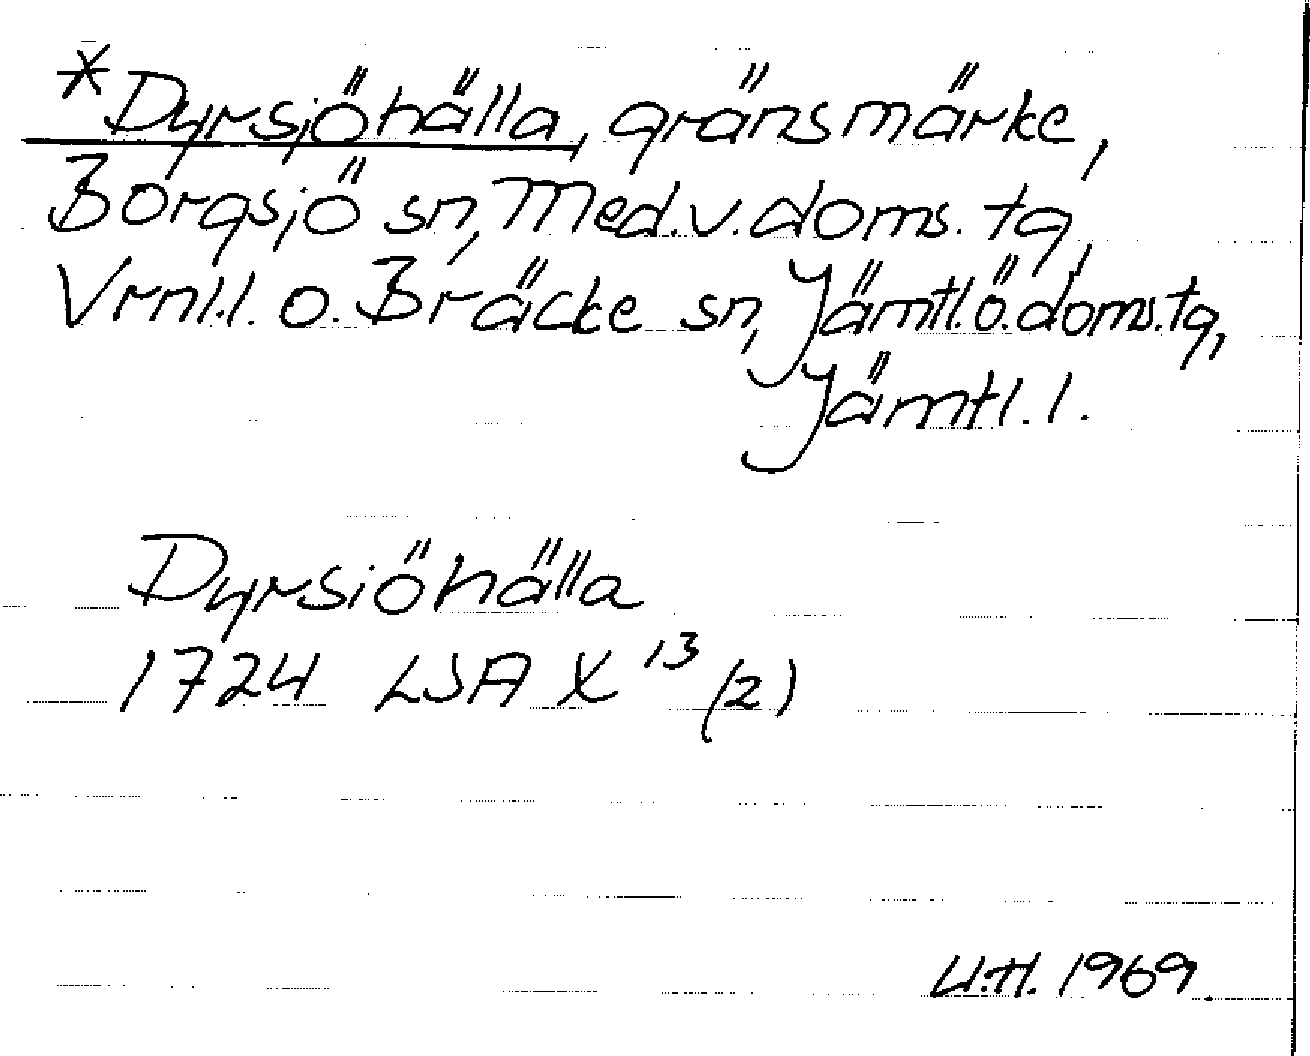 *Dyrsjöhälla, gränsmärke,
Borgsjö sn, Med.v.doms.tg,
Vrnl.l. o. Bräcke sn, Jämtl.ö.doms.tg,
Jämtl.l.
Dyrsiöhälla
1724 LSA X 13 (2)
U.H. 1969.